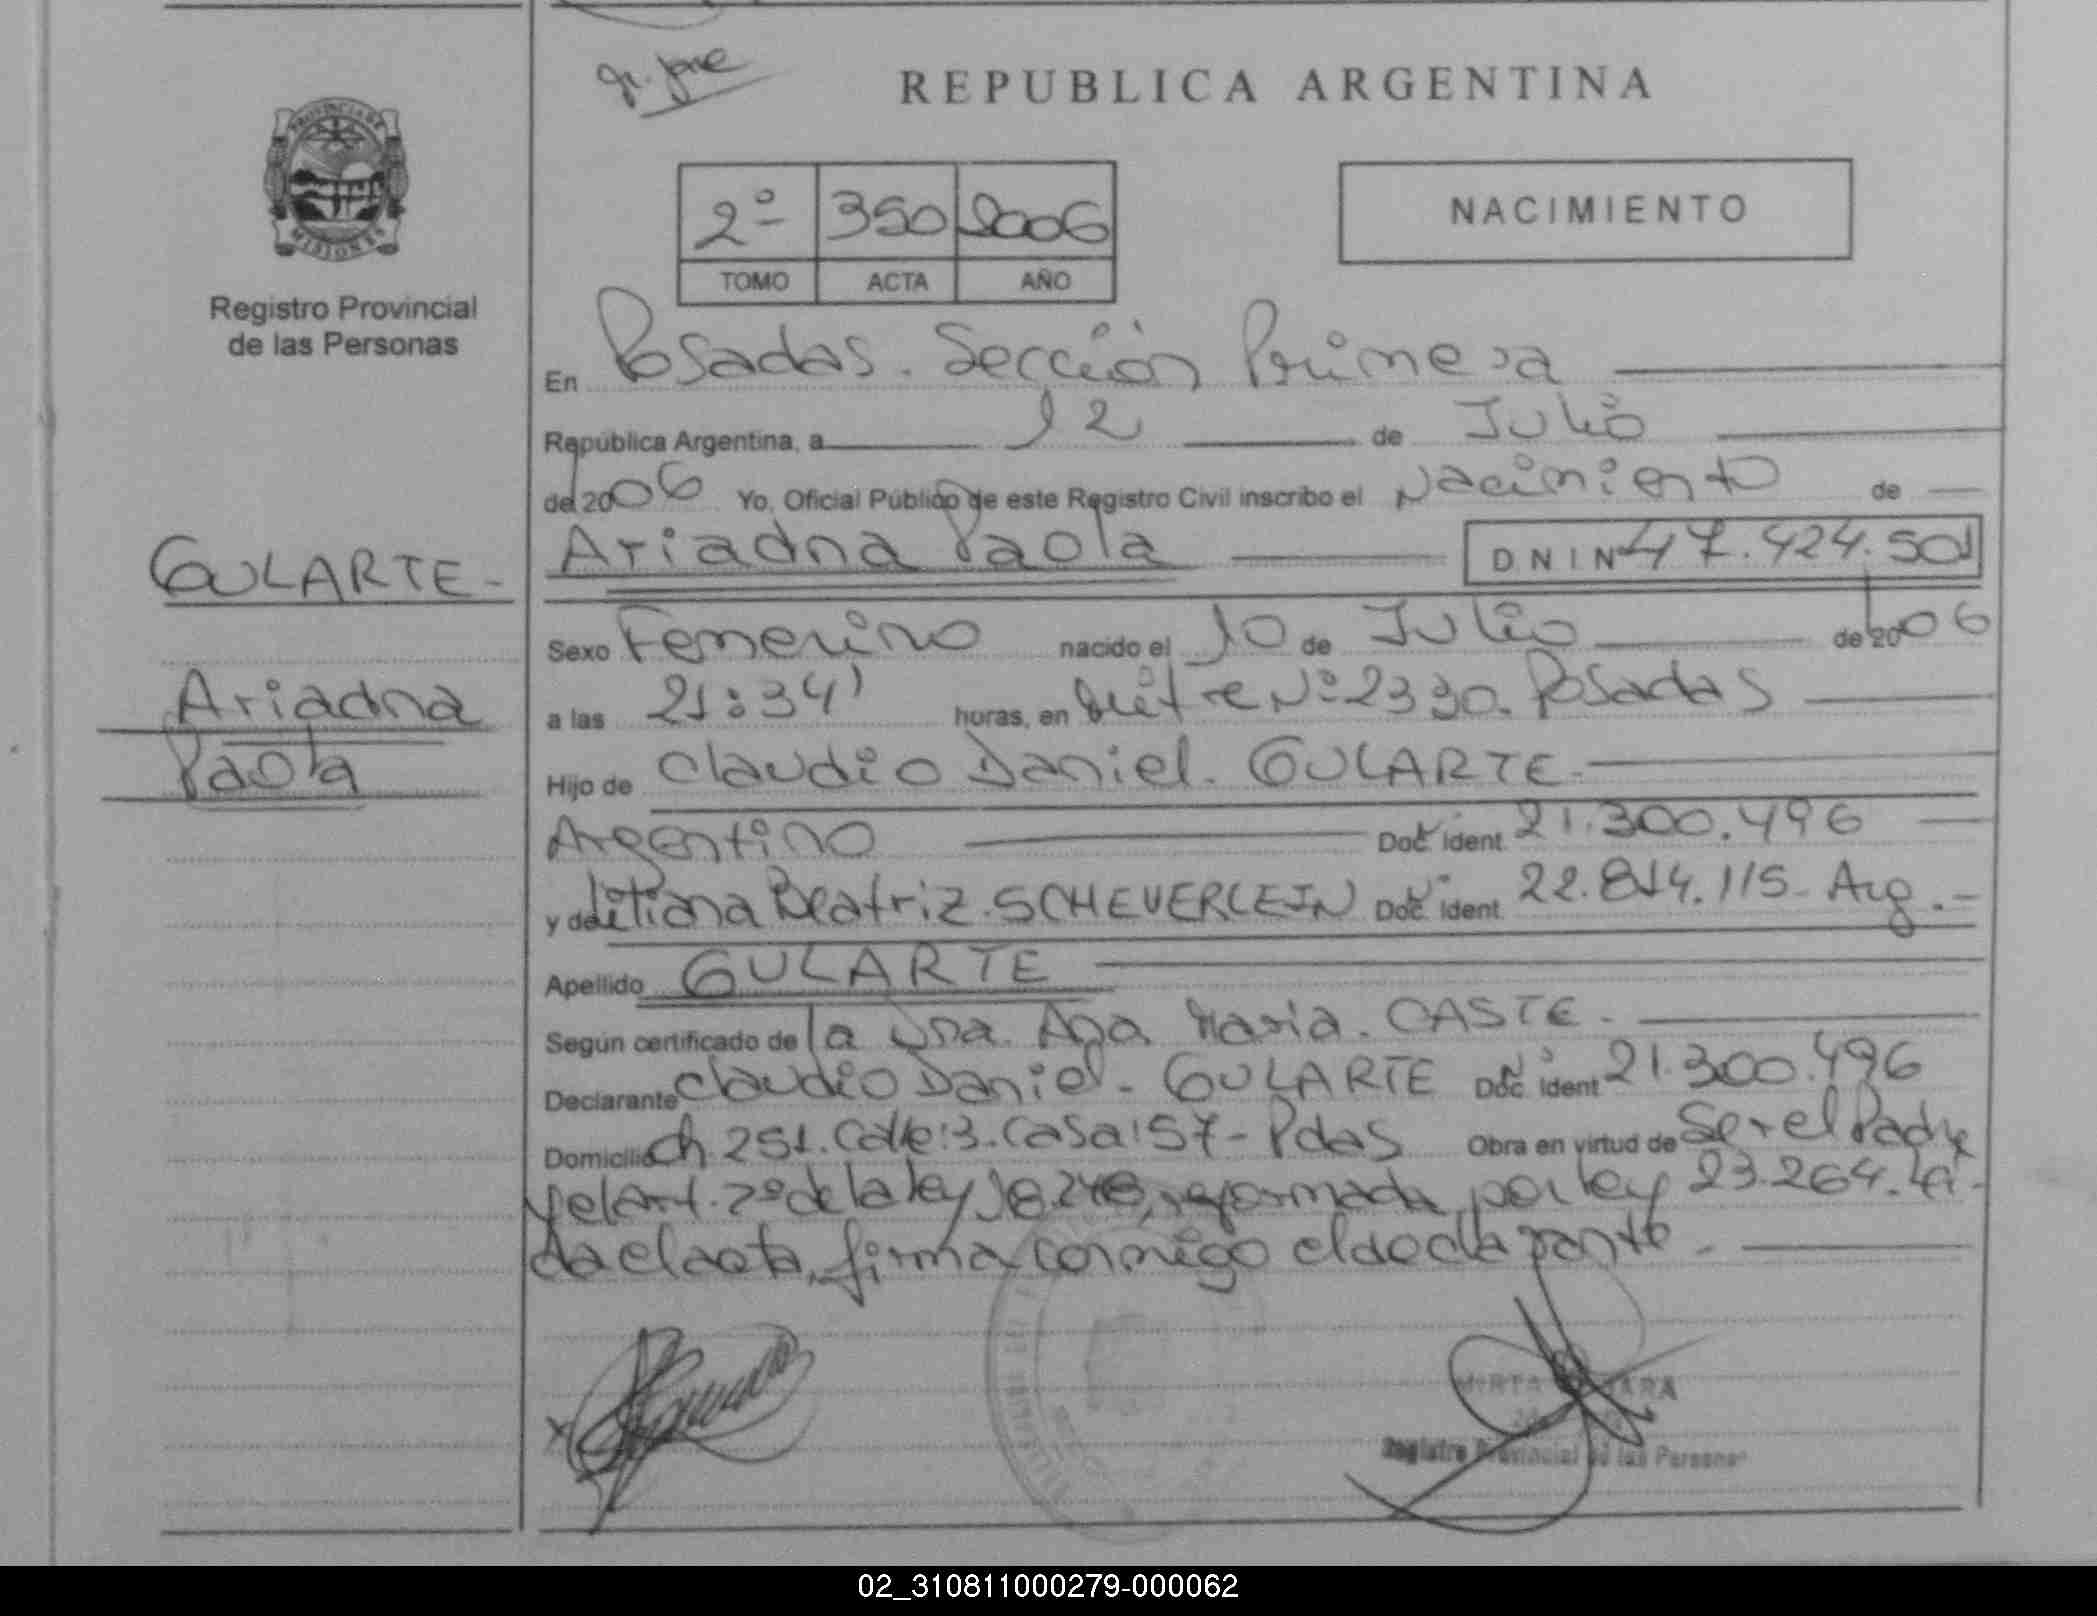 Gr. Jose
REPUBLICA ARGENTINA
PROVINCIA DE
MISIONES
2º 350 2006
TOMO ACTA AÑO
NACIMIENTO
Registro Provincial
de las Personas
En Posadas. Sección Primera
República Argentina, a 12 de Julio
del 2006 Yo, Oficial Público de este Registro Civil inscribo el Nacimiento de
GULARTE-
Ariadna Paola DNI Nº 47.424.501
Sexo Femenino nacido el 10 de Julio de 2006
Ariadna
a las 21:34' horas, en Mitre Nº 2330. Posadas
Paola
Hijo de Claudio Daniel. GULARTE-
Argentino Doc. ident. 21.300.496
y de Litiana Beatriz. SCHEVERLEIN Doc. ident. 22.814.115- Arg.-
Apellido GULARTE
Según certificado de la Dra. Ana Maria. CASTE.
Declarante Claudio Daniel- GULARTE Doc. ident Nº 21.300.496
Domicilio Ch. 251. Calle:3. Casa:57- Pdas Obra en virtud de Ser el Padre
y el Art. 2º de la ley 18.248, reformada por ley 23.264. Leí-
da el acta, firma conmigo el declarante.-
MIRTA ARA
Registro Provincial de las Personas
02_310811000279-000062